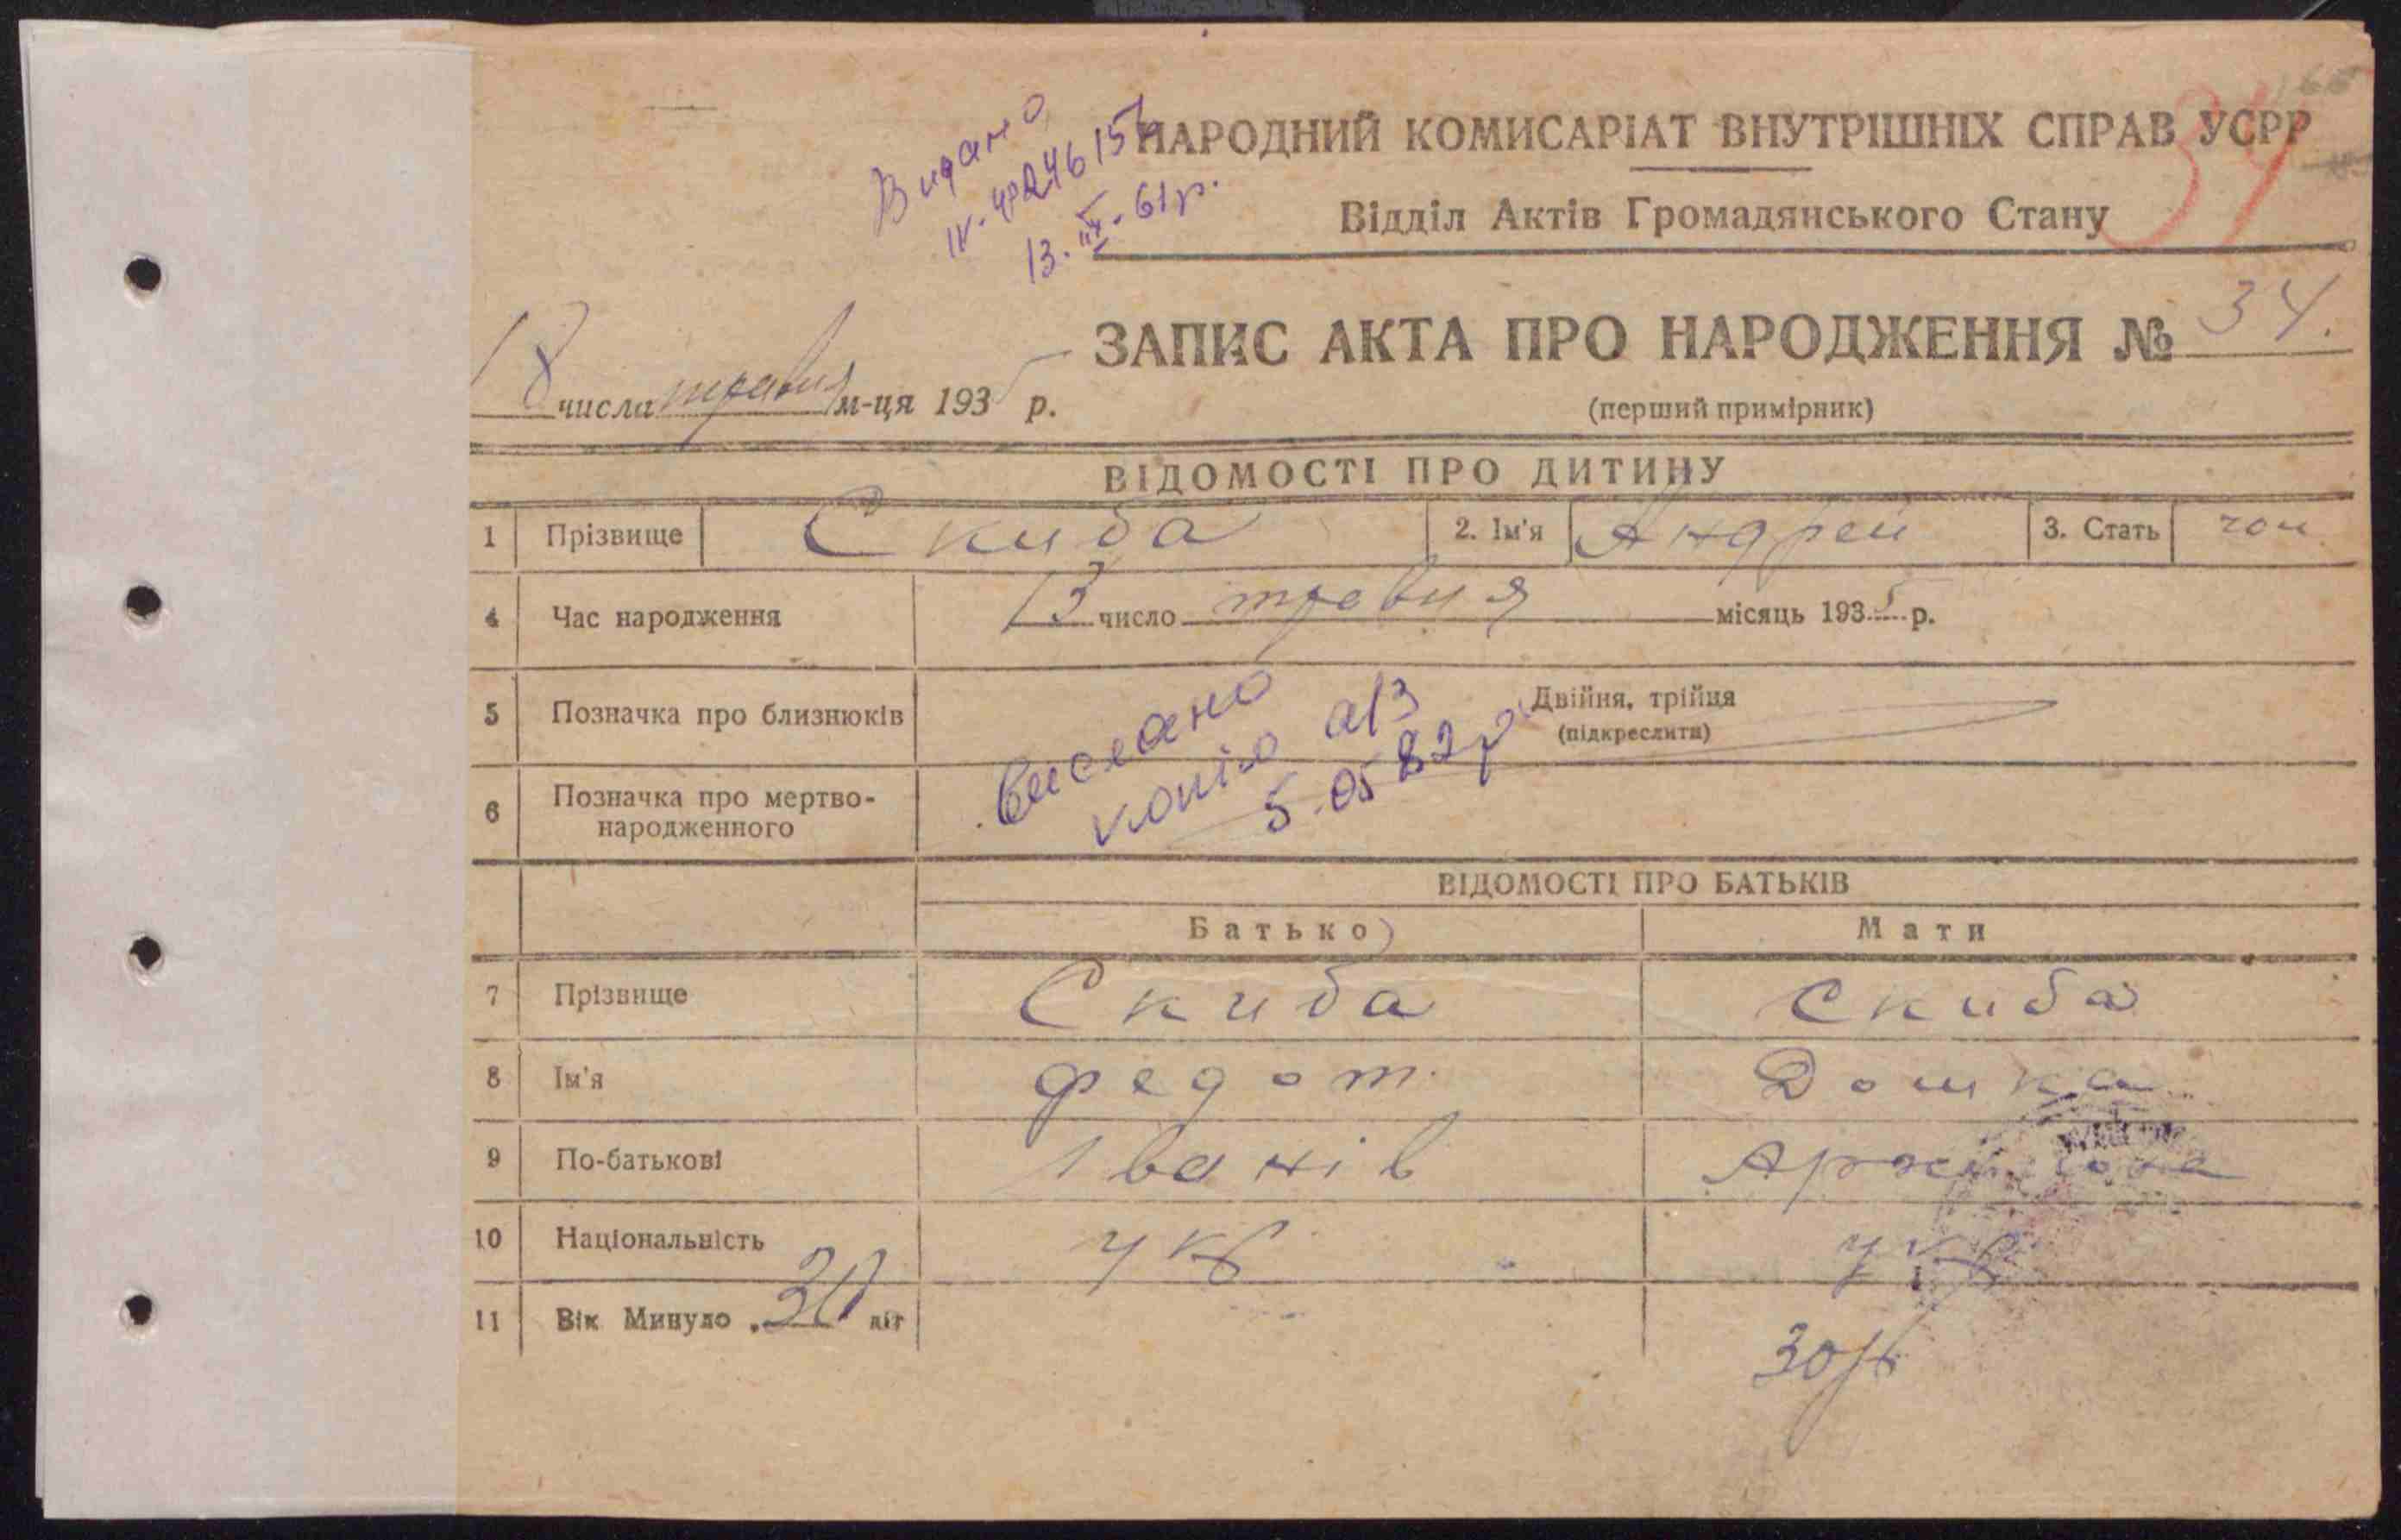 Видано
13. 61р.
34
НАРОДНИЙ КОМИСАРІАТ ВНУТРІШНІХ СПРАВ УСРР
Відділ Актів Громадянського Стану
ЗАПИС АКТА ПРО НАРОДЖЕННЯ № 34.
18 числа травня м-ця 1935 р.
(перший примірник)
ВІДОМОСТІ ПРО ДИТИНУ
1 Прізвище Скиба 2. Ім'я Андрей 3. Стать чол
4 Час народження 13 число травня місяць 1935 р.
5 Позначка про близнюків Двійня, трійця
(підкреслити)
вислано
копію а/з
5.05 82р
6 Позначка про мертво-
народженного
ВІДОМОСТІ ПРО БАТЬКІВ
Батько Мати
7 Прізвище Скиба Скиба
8 Ім'я Федот Домка
9 По-батькові Іванів
10 Національність укр укр
11 Вік Минуло 30 літ 30